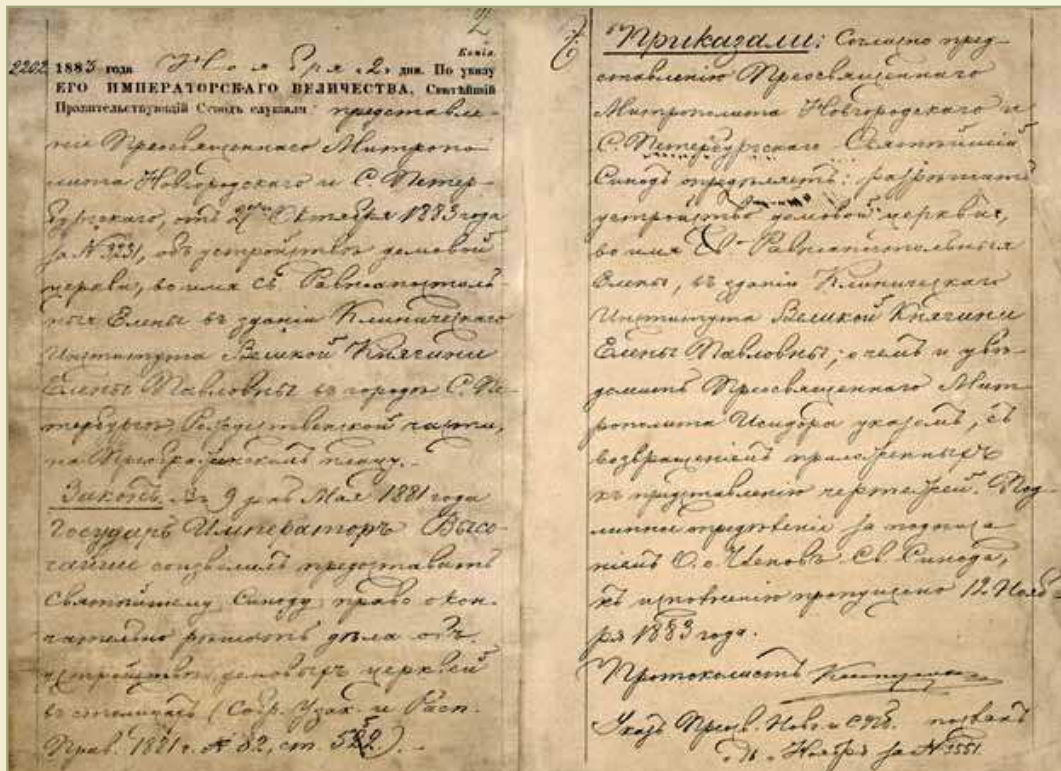 2
Копія.
2202 1883 года Ноября «2» дня. По указу
ЕГО ИМПЕРАТОРСКАГО ВЕЛИЧЕСТВА, Святѣйшій
Правительствующій Сѵнодъ слушали: представле-
ніе Преосвященнаго Митропо-
лита Новгородскаго и С. Петер-
бургскаго, отъ Октября 1883 года
за № 3231, объ устройствѣ домовой
церкви, во имя св. Равноапостоль-
ныя Елены въ зданіи Клиническаго
Института Великой Княгини
Елены Павловны въ городѣ С. Пе-
тербургѣ, Рождественской части,
на Преображенскомъ плацу. –
Законъ. Въ 9 д. Мая 1881 года
Государь Императоръ Высо-
чайше соизволилъ предоставить
Святѣйшему Синоду право окон-
чательно рѣшать дѣла объ
устройствѣ домовыхъ церквей
въ столицахъ (Собр. Узак. и Расп.
Прав. 1881 г. № 62, ст.). –
Приказали: Согласно пред-
ставленію Преосвященнаго
Митрополита Новгородскаго и
С. Петербургскаго Святѣйшій
Синодъ опредѣляетъ: разрѣшить
устройство домовой церкви,
во имя Св. Равноапостольныя
Елены, въ зданіи Клиническаго
Института Великой Княгини
Елены Павловны; о чемъ и увѣ-
домить Преосвященнаго Мит-
рополита Исидора указомъ, съ
возвращеніемъ приложенныхъ
къ представленію чертежей. Под-
линное опредѣленіе за подписа-
ніемъ О.о. Членовъ Св. Синода,
къ исполненію пропущено 12 Нояб-
ря 1883 года.
Протоколистъ
Указъ Преосв. Новг. и СПб. посланъ
Ноября за № 3551.